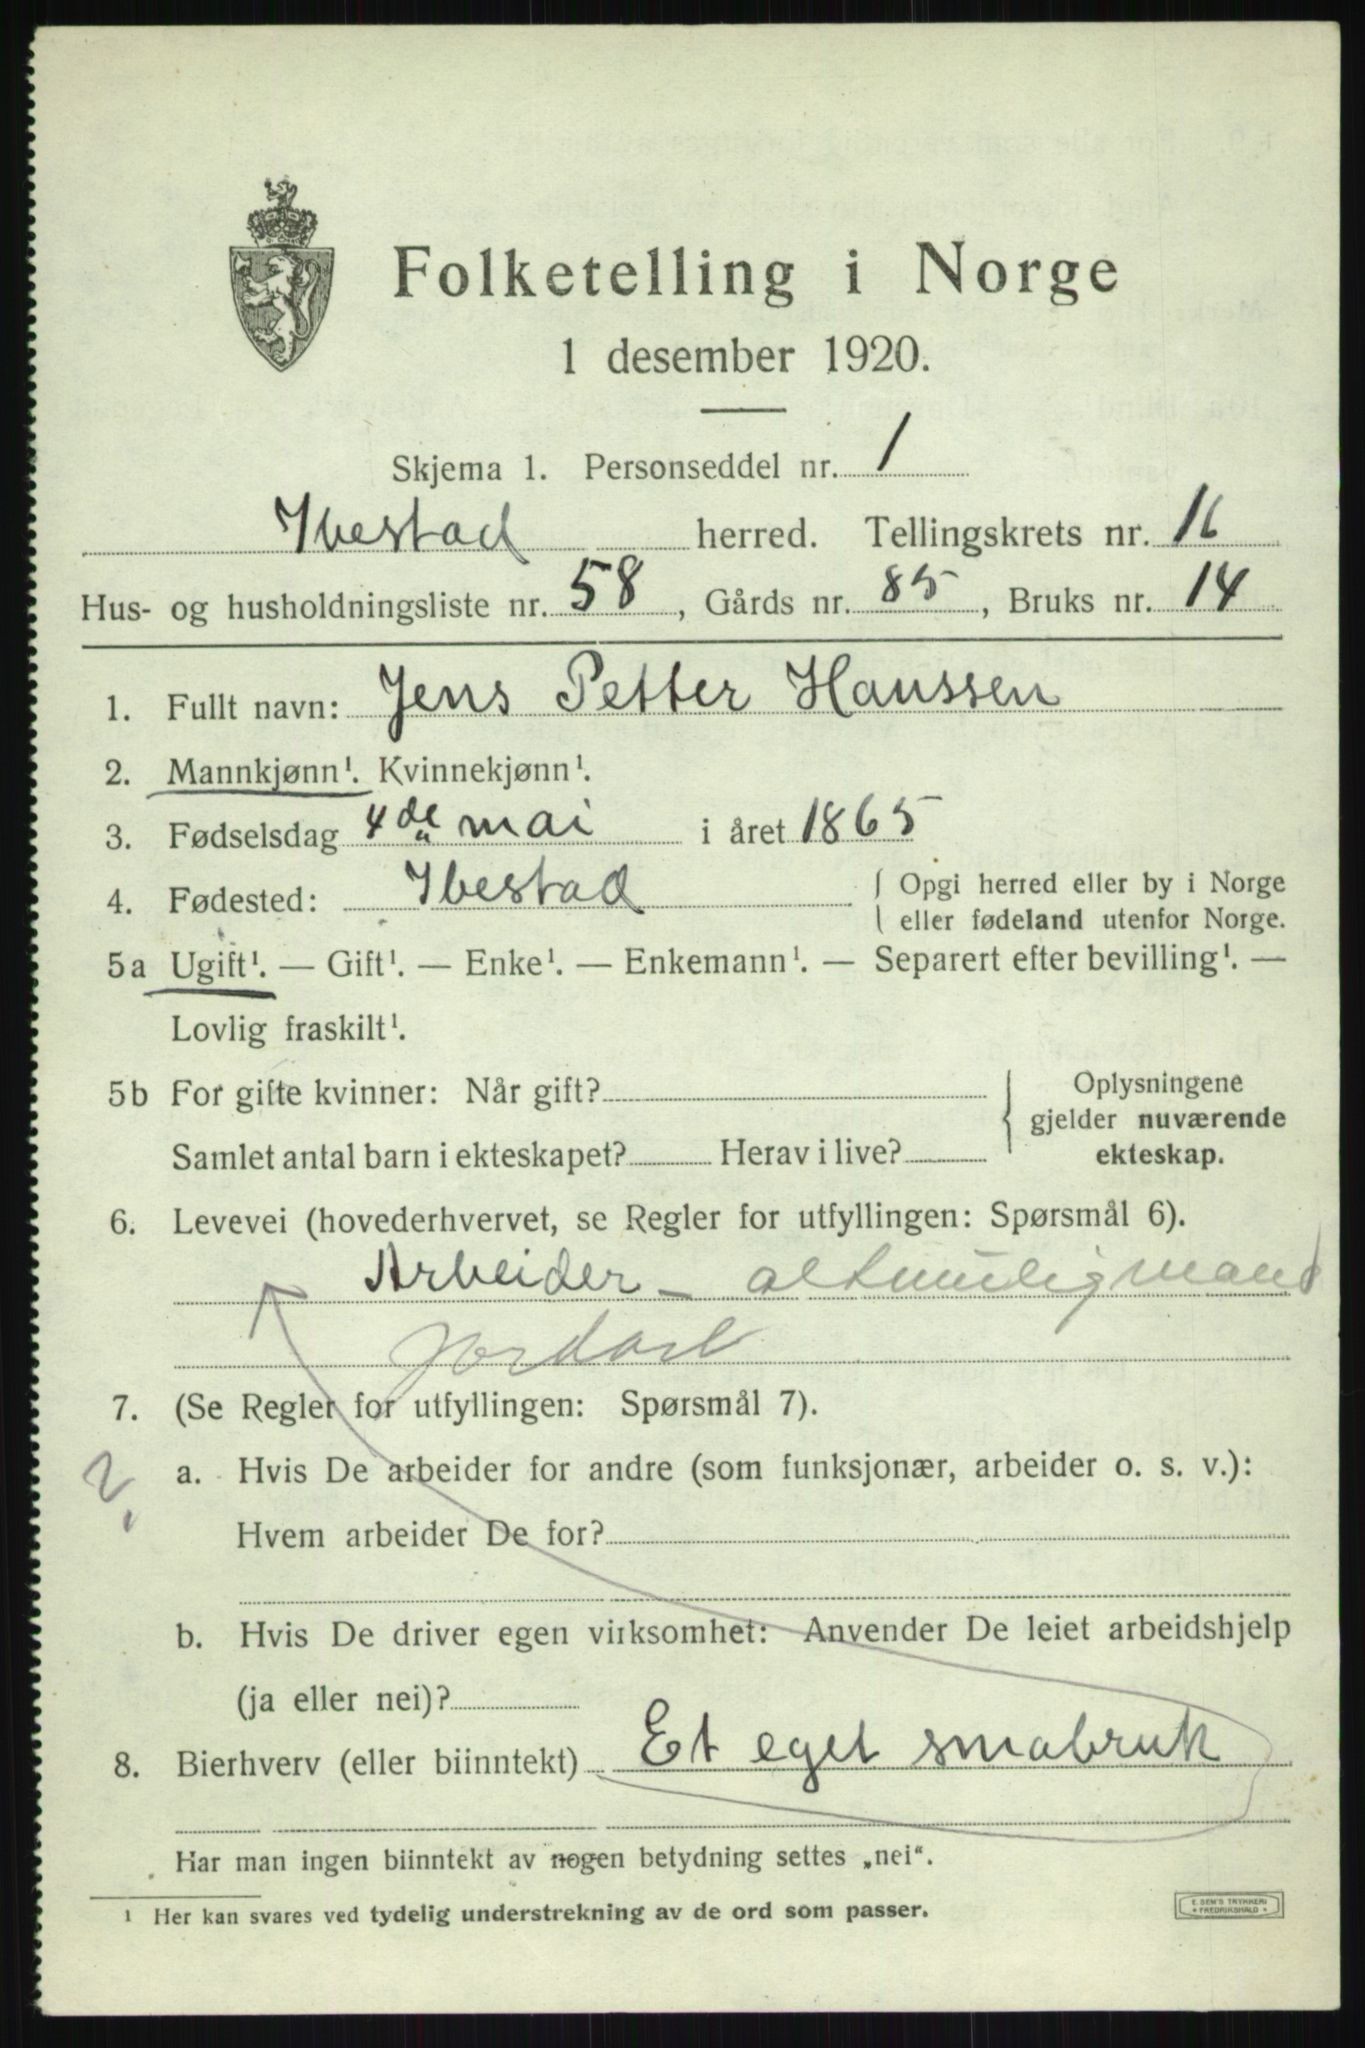 Folketelling i Norge
1 desember 1920.
Skjema 1. Personseddel nr. 1
Ibestad herred. Tellingskrets nr. 16
Hus- og husholdningsliste nr. 58, Gårds nr. 85, Bruks nr. 14
1. Fullt navn: Jens Petter Hanssen
2. Mannkjønn¹. Kvinnekjønn¹.
3. Fødselsdag 4de mai i året 1865
4. Fødested: Ibestad { Opgi herred eller by i Norge
eller fødeland utenfor Norge.
5a Ugift¹. — Gift¹. — Enke¹. — Enkemann¹. — Separert efter bevilling¹. —
Lovlig fraskilt¹.
5b For gifte kvinner: Når gift? { Oplysningene
gjelder nuværende
Samlet antal barn i ekteskapet? Herav i live? ekteskap.
6. Levevei (hovederhvervet, se Regler for utfyllingen: Spørsmål 6).
Arbeider - altmuligmand
jordarb
7. (Se Regler for utfyllingen: Spørsmål 7).
a. Hvis De arbeider for andre (som funksjonær, arbeider o. s. v.):
Hvem arbeider De for?
b. Hvis De driver egen virksomhet: Anvender De leiet arbeidshjelp
(ja eller nei)?
8. Bierhverv (eller biinntekt) Et eget smabruk
Har man ingen biinntekt av nogen betydning settes „nei“.
¹ Her kan svares ved tydelig understrekning av de ord som passer.
E. SEM'S TRYKKERI
FREDRIKSHALD